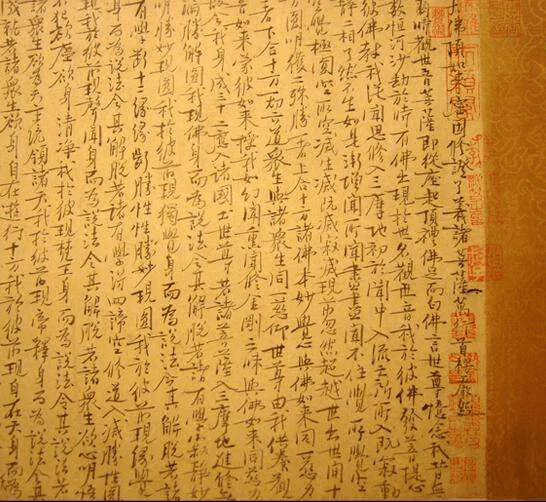 大佛頂如來密因修證了義諸菩薩萬行首楞嚴經
爾時觀世音菩薩即從座起頂禮佛足而白佛言世尊憶念我昔無
數恒河沙劫於時有佛出現於世名觀世音我於彼佛發菩提心
彼佛教我從聞思修入三摩地初於聞中入流亡所所入既寂動
靜二相了然不生如是漸增聞所聞盡盡聞不住覺所覺空
空覺極圓空所空滅生滅既滅寂滅現前忽然超越世出世間十
方圓明獲二殊勝一者上合十方諸佛本妙覺心與佛如來同一慈力二
者下合十方一切六道眾生與諸眾生同一悲仰世尊由我供養觀
音如來蒙彼如來授我如幻聞熏聞修金剛三昧與佛如來同慈力
故令我身成三十二應入諸國土世尊若諸菩薩入三摩地進修無
漏勝解現圓我現佛身而為說法令其解脫若諸有學寂靜妙
明勝妙現圓我於彼前現獨覺身而為說法令其解脫若諸
有學斷十二緣緣斷勝性勝妙現圓我於彼前現緣覺
身而為說法令其解脫若諸有學得四諦空修道入滅勝性現圓
我於彼前現聲聞身而為說法令其解脫若諸眾生欲心明悟
不犯欲塵欲身清淨我於彼前現梵王身而為說法令其解脫若
諸眾生欲為天主統領諸天我於彼前現帝釋身而為說法令其
成就若諸眾生欲身自在遊行十方我於彼前現自在天身而為